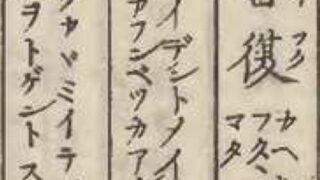 復 フク
カヘ
フタヽ
マタ
イデシトノイ
フンベツカア
カヾミイテ
ヲトゲントス